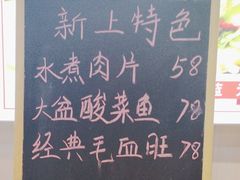 新上特色
水煮肉片 58
大盆酸菜鱼 78
经典毛血旺 78